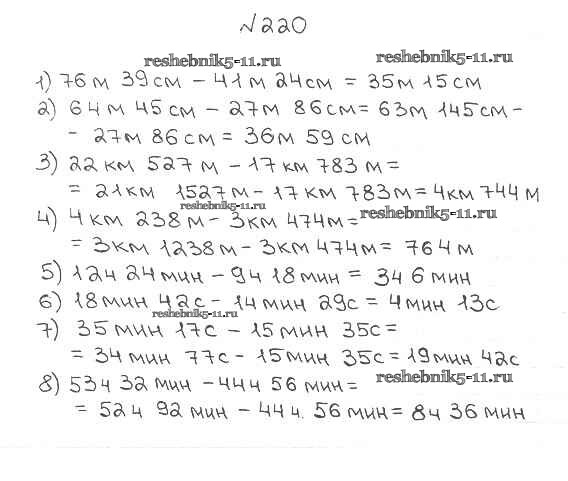 №220
reshebnik5-11.ru reshebnik5-11.ru
1) 76 м 39 см – 41 м 24 см = 35 м 15 см
2) 64 м 45 см – 27 м 86 см = 63 м 145 см –
– 27 м 86 см = 36 м 59 см
3) 22 км 527 м – 17 км 783 м =
= 21 км 1527 м – 17 км 783 м = 4 км 744 м
reshebnik5-11.ru
4) 4 км 238 м – 3 км 474 м = reshebnik5-11.ru
= 3 км 1238 м – 3 км 474 м = 764 м
5) 12 ч 24 мин – 9 ч 18 мин = 3 ч 6 мин
6) 18 мин 42 с – 14 мин 29 с = 4 мин 13 с
reshebnik5-11.ru
7) 35 мин 17 с – 15 мин 35 с =
= 34 мин 77 с – 15 мин 35 с = 19 мин 42 с
8) 53 ч 32 мин – 44 ч 56 мин = reshebnik5-11.ru
= 52 ч 92 мин – 44 ч. 56 мин = 8 ч 36 мин